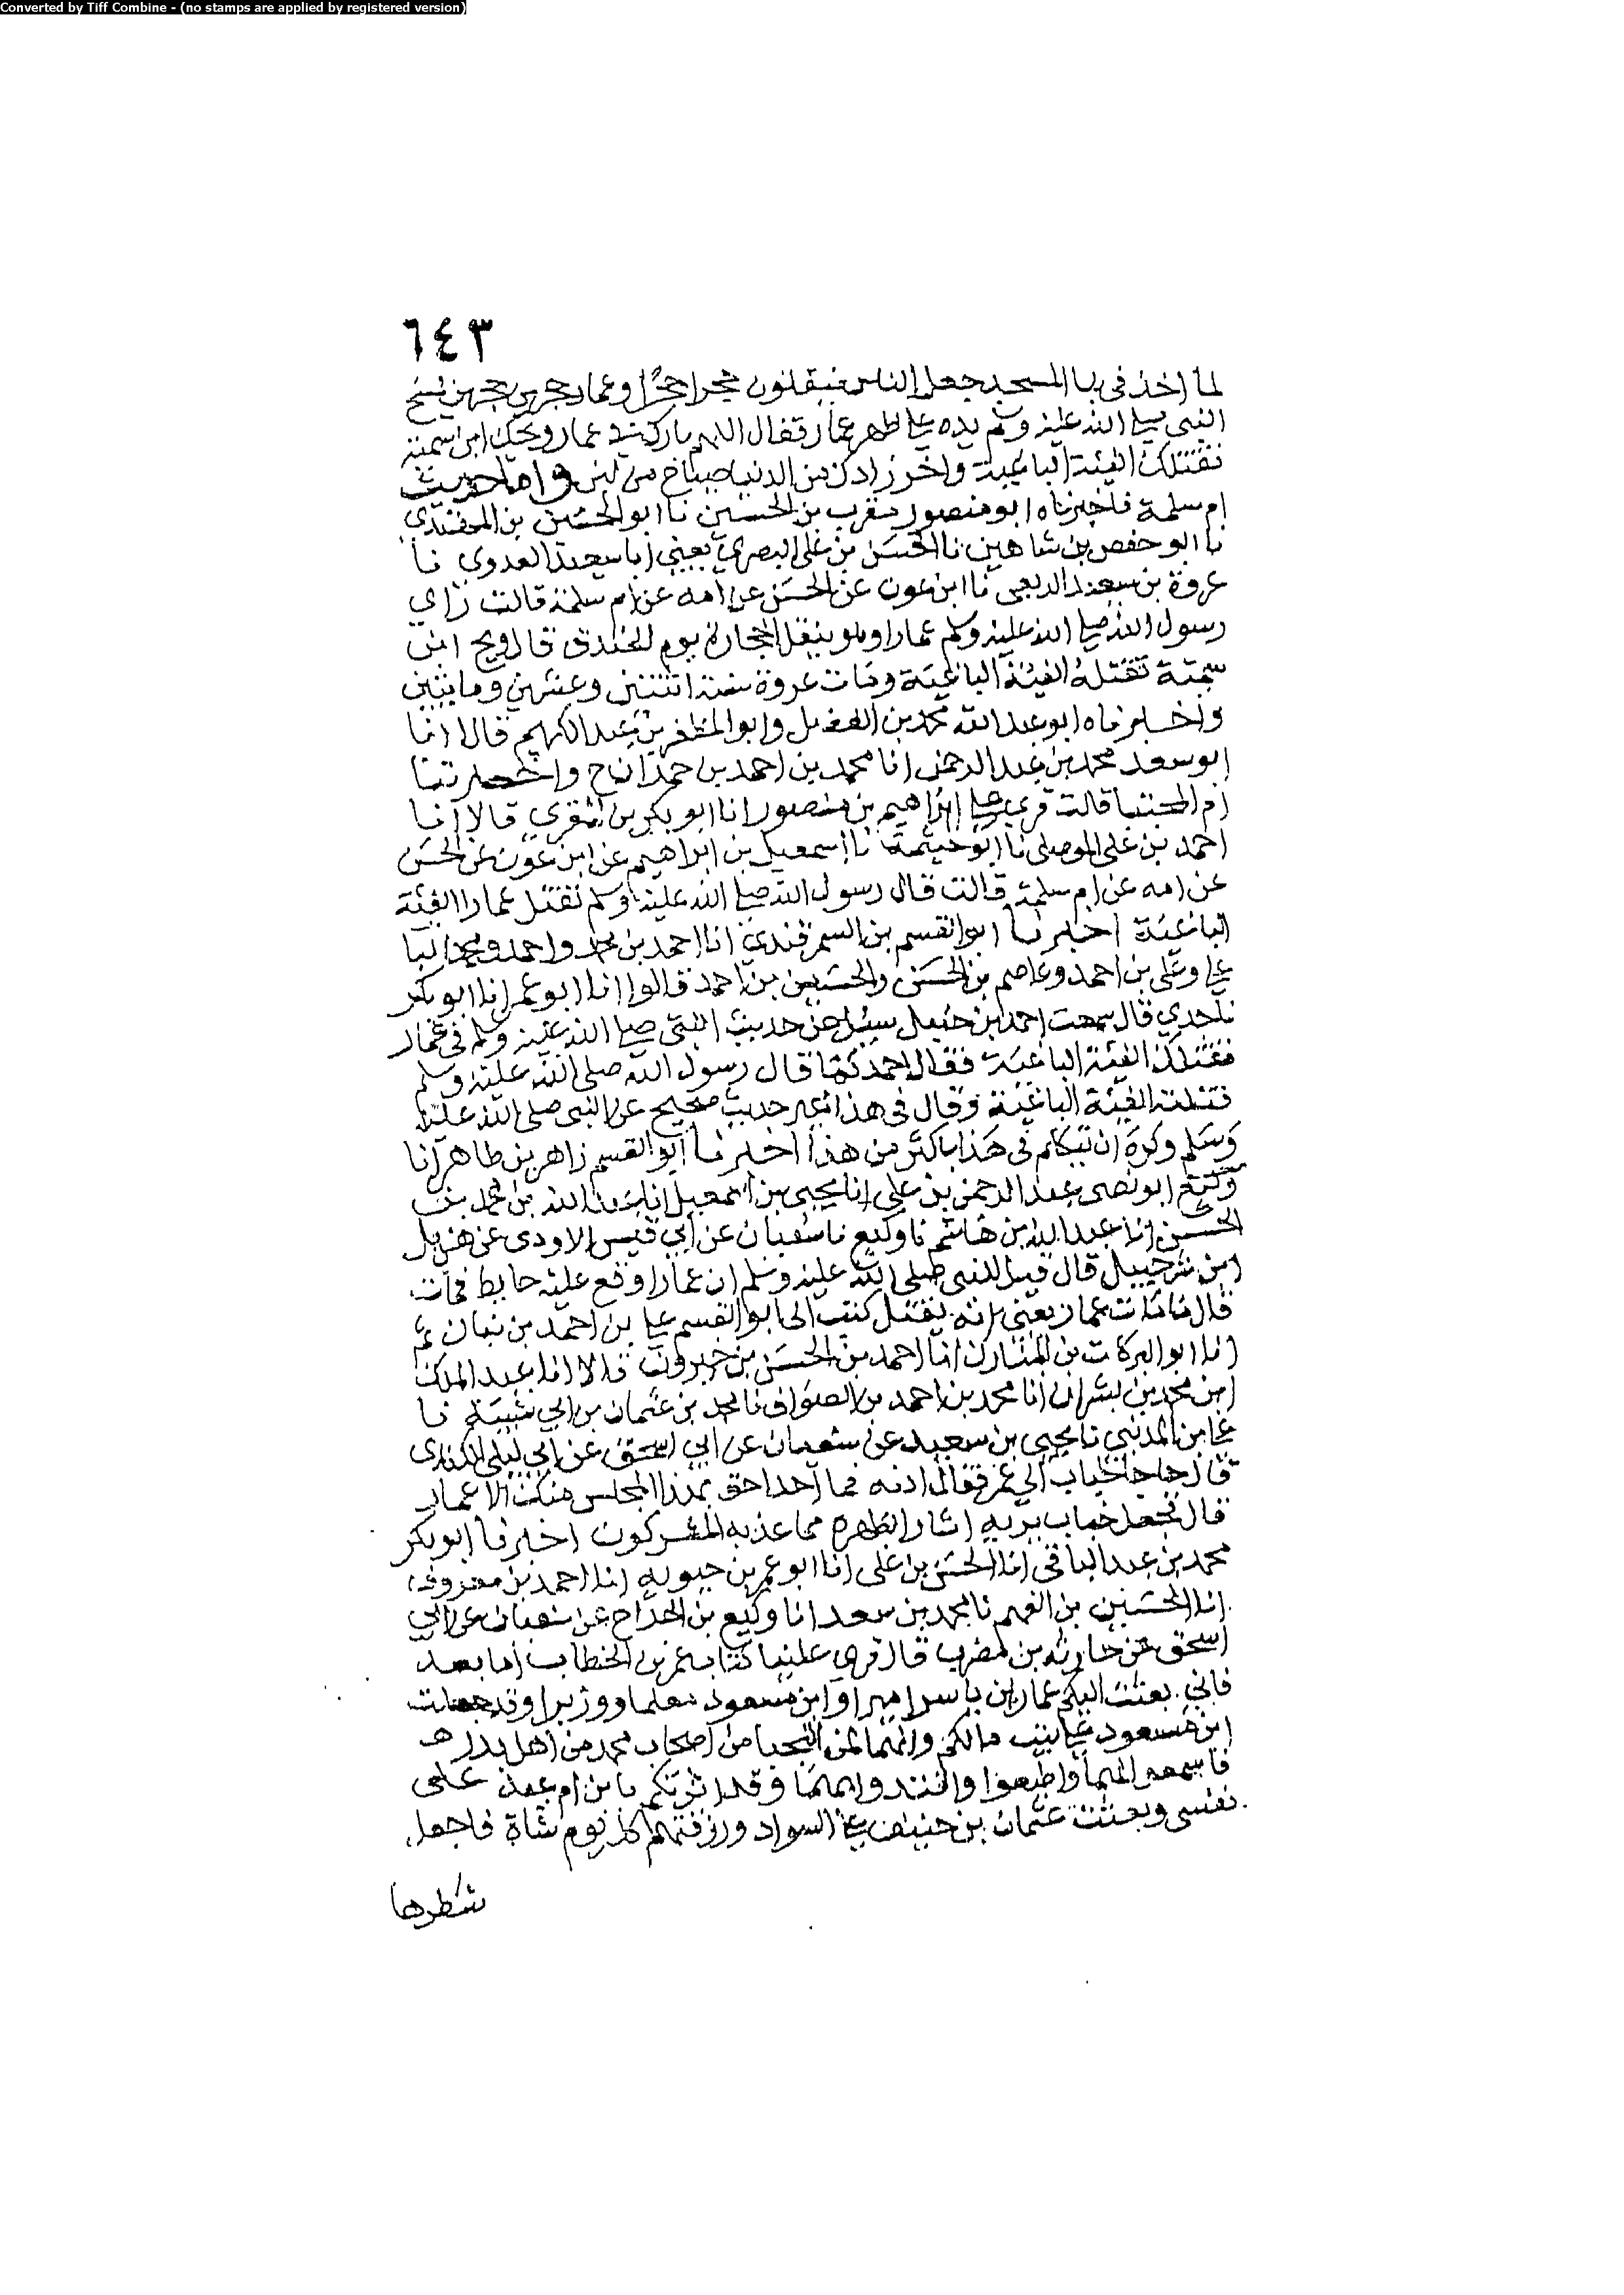 Converted by Tiff Combine - (no stamps are applied by registered version)
٦٤٣
لما اخذ في بنا المسجد جعل الناس ينقلون حجرا حجرا وعمار حجرين حجرين فمسح
النبي صلى الله عليه وسلم يده على ظهر عمار فقال اللهم بارك في عمار ويحك ابن سمية
تقتلك الفئة الباغية واخر زادك من الدنيا ضياح من لبن واما حديث
ام سلمة فاخبرناه ابو منصور مقرب بن الحسين نا ابو الحسين بن المهتدي
نا ابو حفص بن شاهين نا الحسن بن علي البصري يعني ابا سعيد العدوي نا
عروة بن سعيد الربعي نا ابن عون عن الحسن عن امه عن ام سلمة قالت راي
رسول الله صلى الله عليه وسلم عمارا وهو ينقل الحجارة يوم الخندق قال ويح ابن
سمية تقتله الفئة الباغية ومات عروة سنة اثنتين وعشرين ومايتين
واخبرناه ابو عبد الله محمد بن الفضل وابو المظفر بن عبد الكريم قالا انا
ابو سعد محمد بن عبد الرحمن انا محمد بن احمد بن حمدان ح واخبرتنا
ام المجتبا قالت قري على ابراهيم بن منصور انا ابو بكر بن المقري قالا انا
احمد بن علي الموصلي نا ابو خيثمة نا اسمعيل بن ابراهيم عن ابن عون عن الحسن
عن امه عن ام سلمة قالت قال رسول الله صلى الله عليه وسلم تقتل عمارا الفئة
الباغية اخبرنا ابو القسم بن السمرقندي انا احمد بن واحمد ومحمد ابنا
على وعلي بن احمد وعاصم بن الحسن والحسين بن احمد قالوا انا ابو عمر انا ابو بكر
نا جدي قال سمعت احمد بن حنبل سيل عن حديث النبي صلى الله عليه وسلم في عمار
تقتلك الفئة الباغية فقال احمد كما قال رسول الله صلى الله عليه وسلم
قتلته الفئة الباغية وقال في هذا غير حديث صحيح عن النبي صلى الله عليه
وسلم وكره ان يتكلم في هذا باكثر من هذا اخبرنا ابو القسم زاهر بن طاهر انا
ابو نصر عبد الرحمن بن علي انا يحيى بن اسمعيل انا عبد الله بن محمد بن
الحسن انا عبد الله بن هاشم نا وكيع نا سفيان عن ابي قيس الاودي عن هزيل
ابن شرحبيل قال قيل للنبي صلى الله عليه وسلم ان عمارا وقع عليه حايط فمات
قال ما مات عمار يعني انه يقتل كتب الى ابو القسم على بن احمد بن بيان ثم
انا ابو البركات بن المبارك انا احمد بن الحسن بن خيرون قالا انا عبد الملك
ابن محمد بن بشران انا محمد بن احمد بن الصواف نا محمد بن عثمان بن ابي شيبة نا
على بن المديني نا يحيى بن سعيد عن سفيان عن ابي اسحق عن ابي ليلى الكندي
قال جا خباب الي عمر فقال ادنه فما احدا احق بهذا المجلس منك الا عمار
قال فجعل خباب يريه اثارا بظهره مما عذبه المشركون اخبرنا ابو بكر
محمد بن عبد الباقي انا الحسن بن علي انا ابو عمر بن حيويه انا احمد بن معروف
انا الحسين بن الفهم نا محمد بن سعد انا وكيع بن الجراح عن سفيان عن ابي
اسحق عن حارثة بن مضرب قال قري علينا كتاب عمر بن الخطاب اما بعد
فاني بعثت اليكم عمار بن ياسر اميرا وابن مسعود معلما ووزيرا وقد جعلت
ابن مسعود على بيت مالكم وانهما لمن النجبا من اصحاب محمد من اهل بدر
فاسمعوا لهما واطيعوا واقتدوا بهما وقد اثرتكم بابن ام عبد على
نفسي وبعثت عثمان بن حنيف على السواد ورزقتهم كل يوم شاة فاجعل
شطرها